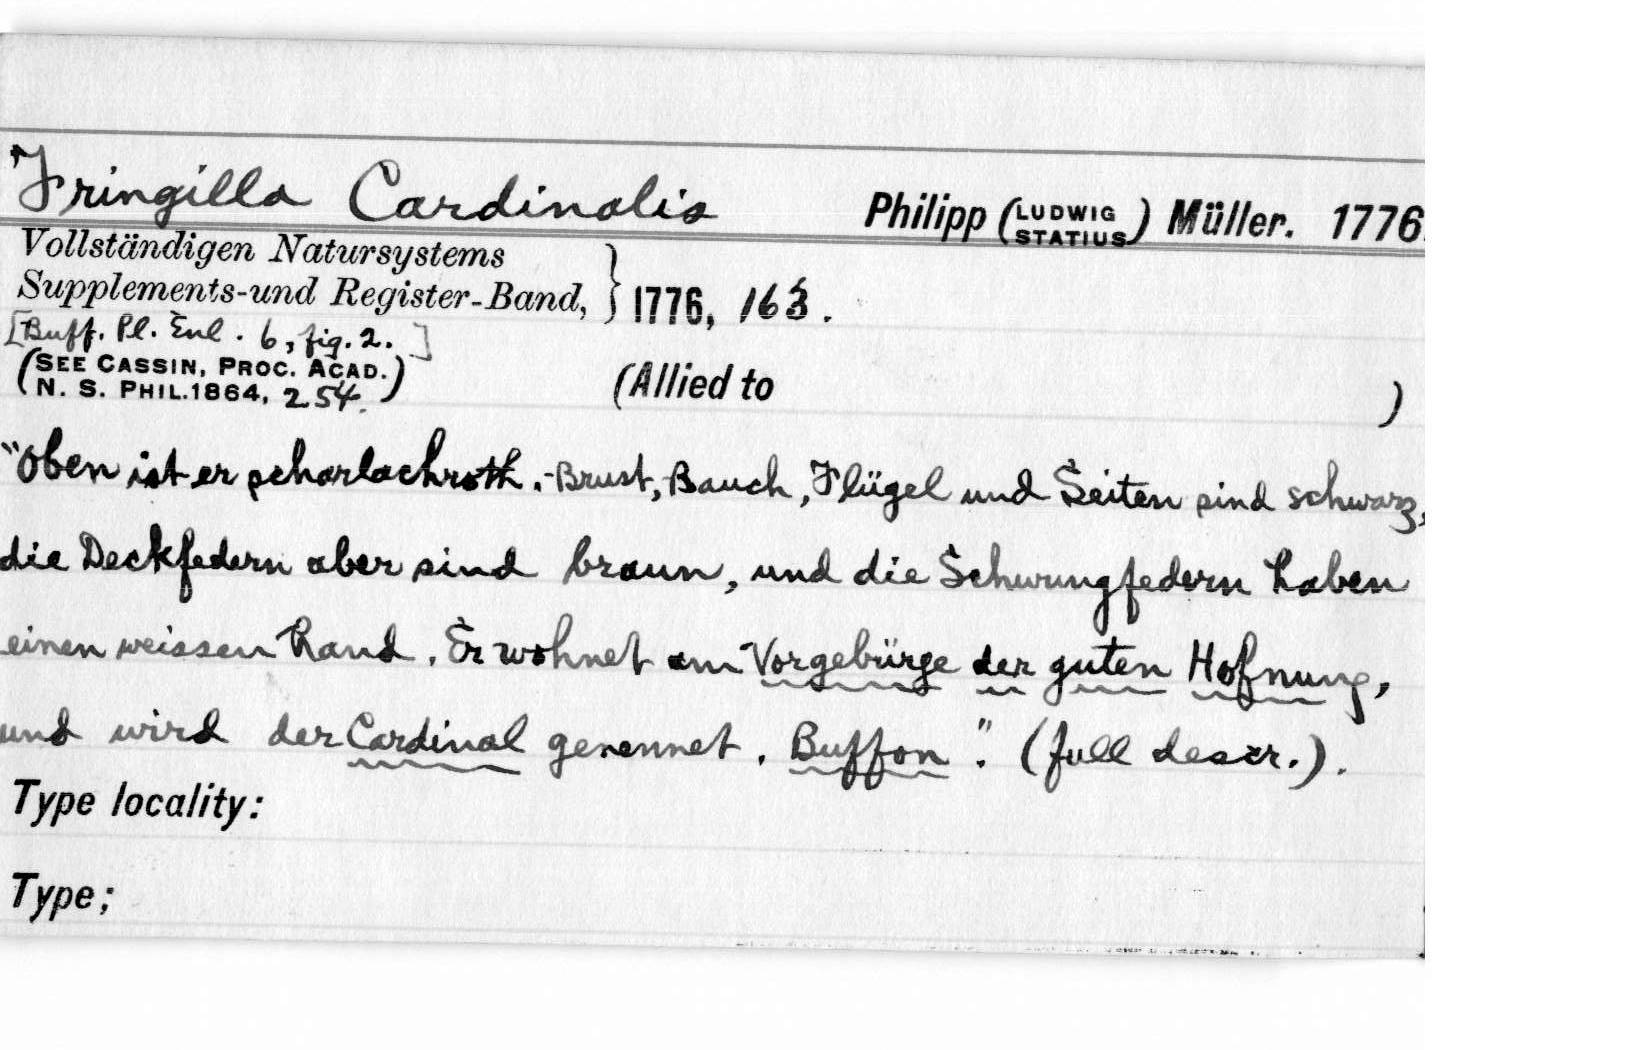 Fringilla Cardinalis Philipp (LUDWIG STATIUS) Müller. 1776.
Vollständigen Natursystems
Supplements-und Register-Band, } 1776, 163.
[Buff. Pl. Enl. 6, fig. 2.]
(SEE CASSIN, PROC. ACAD.
N. S. PHIL. 1864, 254.) (Allied to )
"Oben ist er scharlachroth. Brust, Bauch, Flügel und Seiten sind schwarz,
die Deckfedern aber sind braun, und die Schwungfedern haben
einen weissen Rand. Er wohnet am Vorgebürge der guten Hofnung,
und wird der Cardinal genennet. Buffon." (full descr.).
Type locality:
Type;